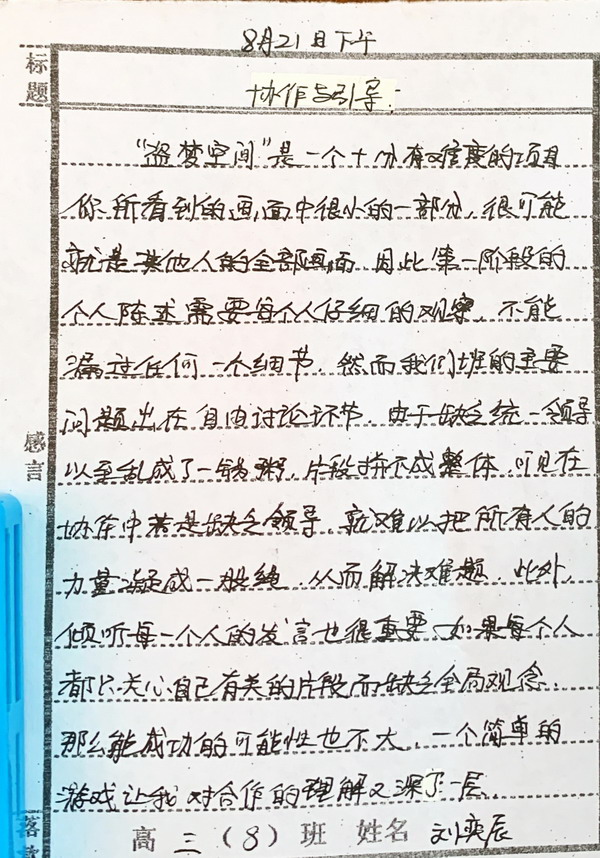 8月21日下午
标题
协作与引导:
"盗梦空间"是一个十分有难度的项目
你所看到的画面中很小的一部分,很可能
就是其他人的全部画面 因此第一阶段的
个人陈述需要每个人仔细的观察,不能
漏过任何一个细节,然而我们班的主要
问题出在自由讨论环节,由于缺乏统一领导
以至乱成了一锅粥,片段拼不成整体,可见在
协作中若是缺乏领导,就难以把所有人的
力量凝成一股绳,从而解决难题,此外,
倾听每一个人的发言也很重要、如果每个人
都只关心自己有关的片段而缺乏全局观念,
那么能成功的可能性也不大,一个简单的
游戏让我对合作的理解又深了一层.
感言
落款
高三(8)班 姓名 刘奕辰